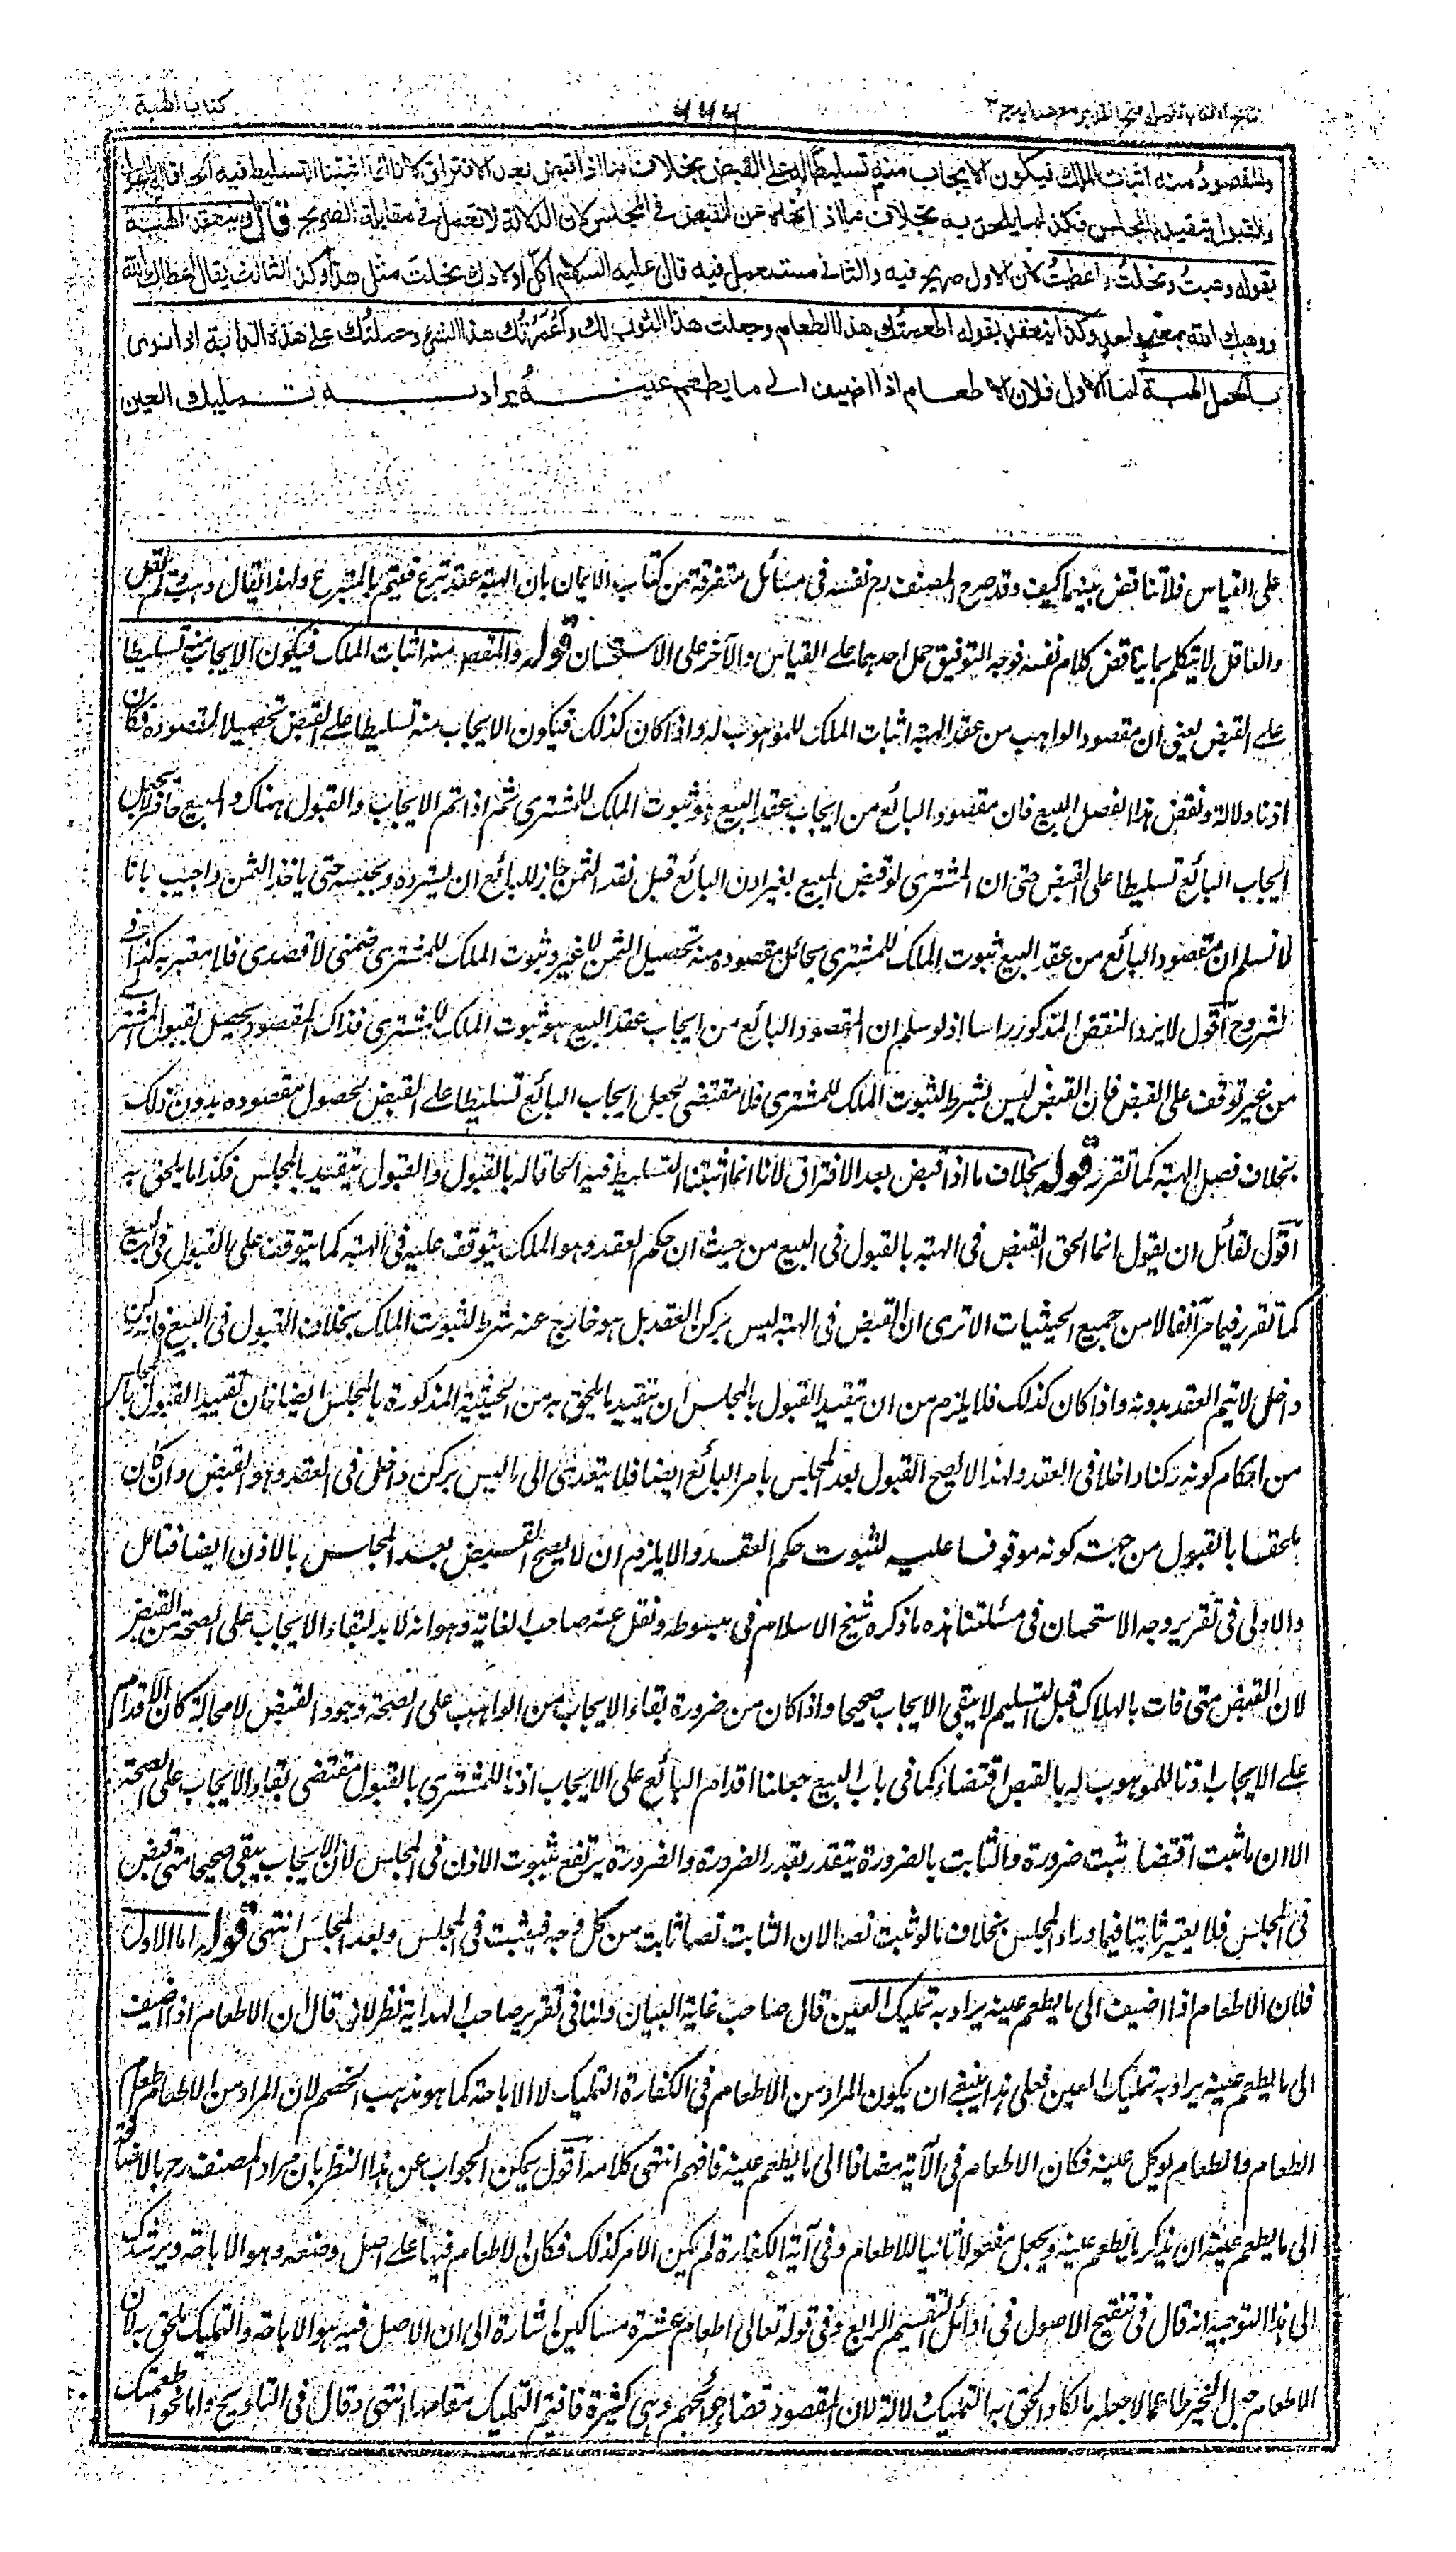 كتاب الهبة
والمقصود منه اثبات الملك فيكون الايجاب منه تسليطا له على القبض بخلاف ما اذا قبض بعد الافتراق لانا انما اثبتنا التسليط فيه الحاقا له بالقبول
والقبول يتقيد بالمجلس فكذا ما يلحق به بخلاف ما اذا نهاه عن القبض في المجلس لان الدلالة لا تعمل في مقابلة الصريح قال وينعقد الهبة
بقوله وهبت ونحلت واعطيت لان الاول صريح فيه والثاني مستعمل فيه قال عليه السلام اكل اولادك نحلت مثل هذا وكذا الثالث يقال اعطاك الله
ووهبك الله بمعنى واحد وكذا ينعقد بقوله اطعمتك هذا الطعام وجعلت هذا الثوب لك واعمرتك هذا الشيء وحملتك على هذه الدابة اذا نوى
بالحمل الهبة اما الاول فلان الاطعام اذا اضيف الى ما يطعم عينه يراد به تمليك العين
على القياس فلا تناقض بينهما كيف وقد صرح المصنف رح نفسه في مسائل متفرقة من كتاب الايمان بان الهبة عقد تبرع فيتم بالمتبرع ولهذا يقال وهبت ولم يقبل
والعاقل لا يتكلم بما يناقض كلام نفسه فوجه التوفيق حمل احدهما على القياس والآخر على الاستحسان قوله والمقصود منه اثبات الملك فيكون الايجاب منه تسليطا
على القبض يعني ان مقصود الواهب من عقد الهبة اثبات الملك للموهوب له واذا كان كذلك فيكون الايجاب منه تسليطا على القبض تحصيلا لمقصوده فكان
اذنا دلالة ونقض هذا بفصل البيع فان مقصود البائع من ايجاب عقد البيع ثبوت الملك للمشتري ثم اذا تم الايجاب والقبول هناك والمبيع حاضر لا يجعل
ايجاب البائع تسليطا على القبض حتى ان المشتري لو قبض المبيع بغير اذن البائع قبل نقد الثمن جاز للبائع ان يسترده ويحبسه حتى ياخذ الثمن واجيب بانا
لا نسلم ان مقصود البائع من عقد البيع ثبوت الملك للمشتري بحال بل مقصوده منه تحصيل الثمن لا غير وثبوت الملك للمشتري ضمني لا قصدي فلا معتبر به كذا في
الشروح اقول لا يرد النقض المذكور راسا اذ لو سلم ان المقصود البائع من ايجاب عقد البيع هو ثبوت الملك للمشتري فذاك المقصود يحصل بقبول المشتري
من غير توقف على القبض فان القبض ليس بشرط لثبوت الملك للمشتري فلا مقتضي لجعل ايجاب البائع تسليطا على القبض لحصول مقصوده بدون ذلك
بخلاف فصل الهبة كما تقرر قوله بخلاف ما اذا قبض بعد الافتراق لانا انما اثبتنا التسليط فيه الحاقا له بالقبول والقبول يتقيد بالمجلس فكذا ما يلحق به
اقول لقائل ان يقول انما الحق القبض في الهبة بالقبول في البيع من حيث ان حكم العقد وهو الملك يتوقف عليه في الهبة كما يتوقف على القبول في البيع
كما تقرر فيما مر آنفا لا من جميع الحيثيات الا ترى ان القبض في الهبة ليس بركن العقد بل هو خارج عنه شرط لثبوت الملك بخلاف القبول في البيع فانه ركن
داخل لا يتم العقد بدونه واذا كان كذلك فلا يلزم من ان يتقيد القبول بالمجلس ان يتقيد ما يلحق به من الحيثية المذكورة بالمجلس ايضا فان تقييد القبول بالمجلس
من احكام كونه ركنا داخلا في العقد ولهذا لا يصح القبول بعد المجلس بامر البائع ايضا فلا يتعدى الى ما ليس بركن داخل في العقد وهو القبض وان كان
ملحقا بالقبول من جهة كونه موقوفا عليه لثبوت حكم العقد والا يلزم ان لا يصح القبض بعد المجلس بالاذن ايضا فتامل
والاولى في تقرير وجه الاستحسان في مسئلتنا هذه ما ذكره شيخ الاسلام في مبسوطه ونقل عنه صاحب الغاية وهو انه لا بد لبقاء الايجاب على الصحة من القبض
لان القبض متى فات بالهلاك قبل التسليم لا يبقى الايجاب صحيحا واذا كان من ضرورة بقاء الايجاب من الواهب على الصحة وجود القبض لا محالة كان الاقدام
على الايجاب اذنا للموهوب له بالقبض اقتضاء كما في باب البيع جعلنا اقدام البائع على الايجاب اذنا للمشتري بالقبول مقتضى بقاء الايجاب على الصحة
الا ان ما ثبت اقتضاء ثبت ضرورة والثابت بالضرورة يتقدر بقدر الضرورة والضرورة يرتفع بثبوت الاذن في المجلس لان الايجاب يبقى صحيحا متى قبض
في المجلس فلا يعتبر ثابتا فيما وراء المجلس بخلاف ما لو ثبت نصا لان الثابت نصا ثابت من كل وجه فيثبت في المجلس وبعد المجلس انتهى قوله اما الاول
فلان الاطعام اذا اضيف الى ما يطعم عينه يراد به تمليك العين قال صاحب غاية البيان ولنا في تقرير صاحب الهداية نظر لانه قال ان الاطعام اذا اضيف
الى ما يطعم عينه يراد به تمليك العين فعلى هذا ينبغي ان يكون المراد من الاطعام في الكفارة التمليك لا الاباحة كما هو مذهب الخصم لان المراد من الاطعام طعام
الطعام والطعام يوكل عينه فكان الاطعام في الآية مضافا الى ما يطعم عينه فافهم انتهى كلامه اقول يمكن الجواب عن هذا النظر بان مراد المصنف رح بالاضافة
الى ما يطعم عينه ان يذكر ما يطعم عينه ويجعل مفعولا ثانيا للاطعام وفي آية الكفارة لم يكن الامر كذلك فكان الاطعام فيها على اصل وضعه وهو الاباحة ويرشدك
الى هذا التوجيه انه قال في تنقيح الاصول في اوائل التقسيم الرابع وفي قوله تعالى اطعام عشرة مساكين اشارة الى ان الاصل فيه هو الاباحة والتمليك ملحق به لان
الاطعام جعل الغير طاعما لا جعله مالكا والحق به التمليك دلالة لان المقصود قضاء حوائجهم وهي كثيرة فاقيم التمليك مقامها انتهى وقال في التلويح واما نحو اطعمتك